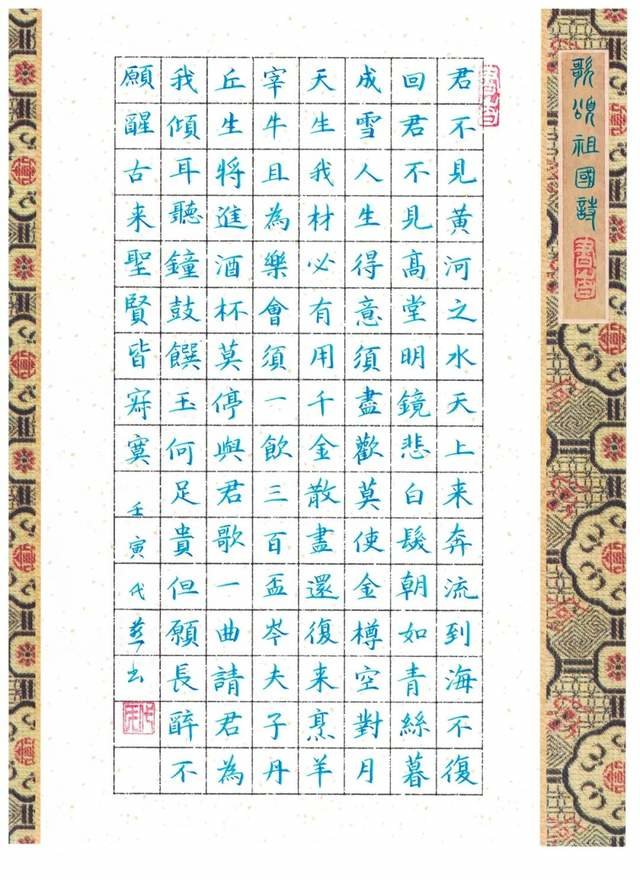 歌頌祖國詩
君不見黃河之水天上来奔流到海不復
回君不見髙堂明鏡悲白髮朝如青絲暮
成雪人生得意須盡歡莫使金樽空對月
天生我材必有用千金散盡還復来烹羊
宰牛且為樂會須一飲三百盃岑夫子丹
丘生將進酒杯莫停與君歌一曲請君為
我傾耳聽鐘鼓饌玉何足貴但願長醉不
願醒古来聖賢皆寂寞
壬寅代书